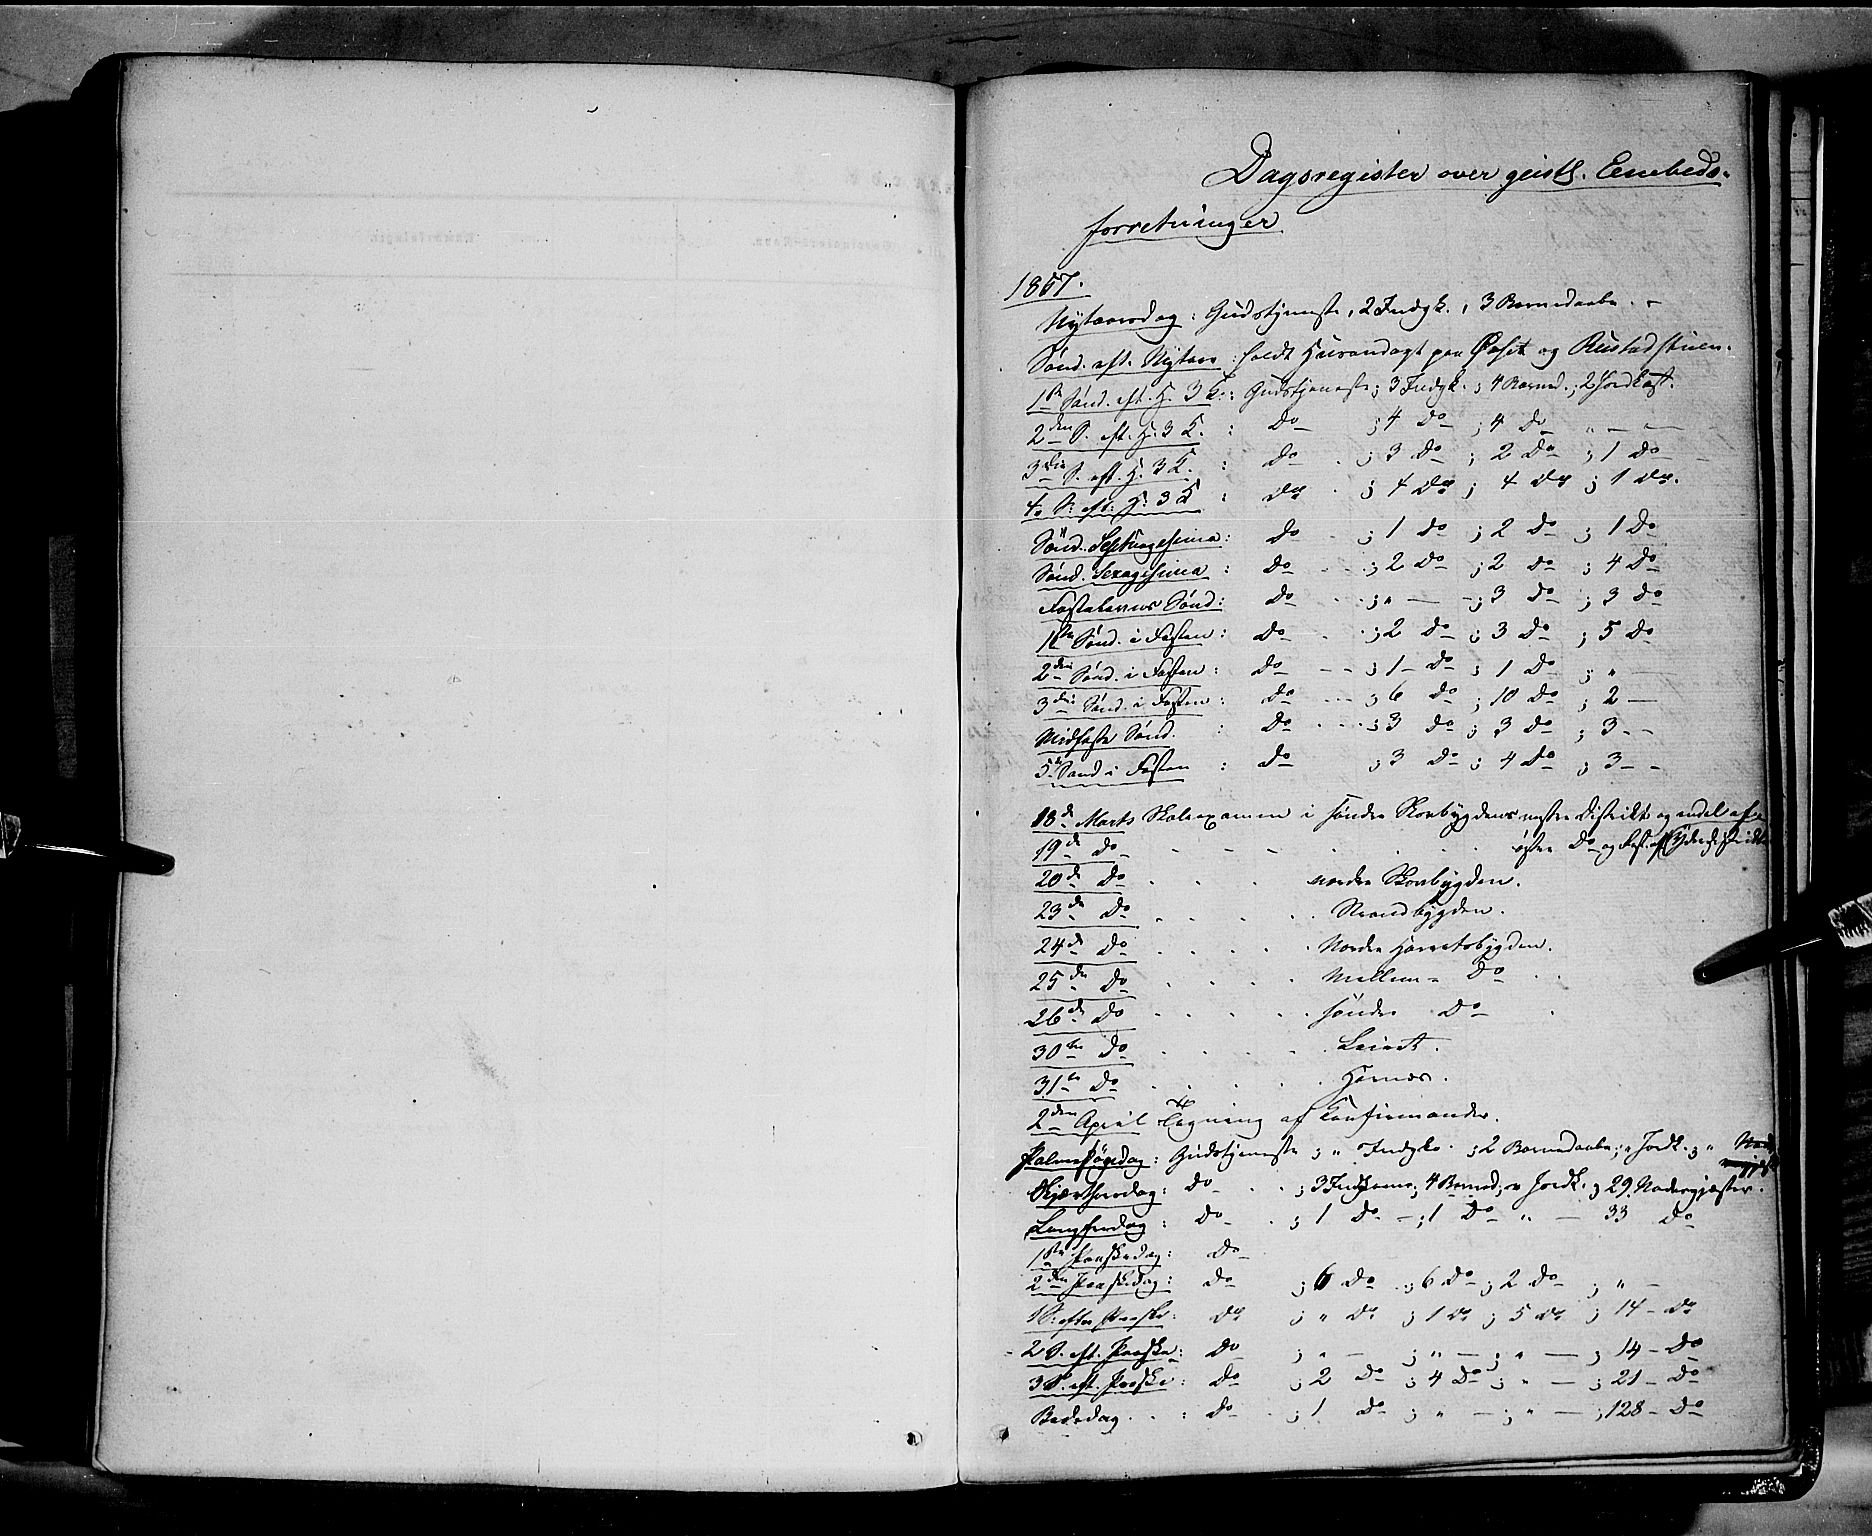 Dagsregister over geistl. Embeds-
forretninger
1857.
Nytaarsdag: Gudstjeneste, 2 Indgk., 3 Barnedaabe. -
Sønd. eft. Nytaar: holdt Husandagt paa Øset og Rustadstuen.
1ste Sønd. eft. H. 3 K.: Gudstjeneste; 3 Indgk.; 4 Barned.; 2 Jordkast.
2den S. eft. H. 3 K.: Do ; 4 Do ; 4 Do „ —
3die S. eft. H. 3 K.: Do ; 3 Do ; 2 Do ; 1 Do
4. S. eft. H. 3 K: Do ; 4 Do ; 4 Do ; 1 Do.
Sønd. Septuagesima: Do ; 1 Do ; 2 Do ; 1 Do
Sønd. Sexagesima: Do ; 2 Do ; 2 Do ; 4 Do
Fastelavns Sønd: Do ; „ — ; 3 Do ; 3 Do
1ste Sønd. i Fasten: Do ; 2 Do ; 3 Do ; 5 Do
2den Sønd. i Fasten: Do ; 1 Do ; 1 Do ; „ —
3die Sønd. i Fasten: Do ; 6 Do ; 10 Do ; 2 —
Midfaste Sønd. : Do ; 3 Do ; 3 Do ; 3 - -
5te Sønd i Fasten : Do ; 3 Do ; 4 Do ; 3 - -
18de Marts Skoleexamen i søndre Skovbygdens vestre Distrikt og endel af
19de Do . . . . østre Do og
20de Do . . . nordre Skovbygden.
23de Do . . . . Strandbygden.
24de Do . . . . Nordre Hovretsbygden.
25de Do . . . . Mellem- Do
26de Do . . . . søndre Do
30te Do . . . . Leiret.
31te Do . . . . Hernæs.
2den April Tegning af Konfirmander.
Palmesøndag: Gudstjeneste ; „ Indgk. ; 2 Barnedaabe; „ Jordk. ; „
Skjærthorsdag: Do . . ; 3 Indgk. ; 4 Barned; „ Jordk. ; 29 Nadvergjæster.
Langfredag: Do . ; 1 Do - ; 1 Do „ — 33 Do
1ste Paaskedag: Do
2den Paaskedag: Do ; 6 Do ; 6 Do ; 2 Do ; „ —
1 S. efter Paaske: Do ; „ Do ; 1 Do ; 5 Do ; 14 - Do
2 S. eft. Paaske: Do ; „ — ; „ — ; „ — ; 14 - Do
3 S. eft. Paaske: Do ; 2 Do ; 4 Do ; „ — ; 21 - Do
Bededag . . : Do . ; 1 Do ; „ — ; „ — ; 128 - Do